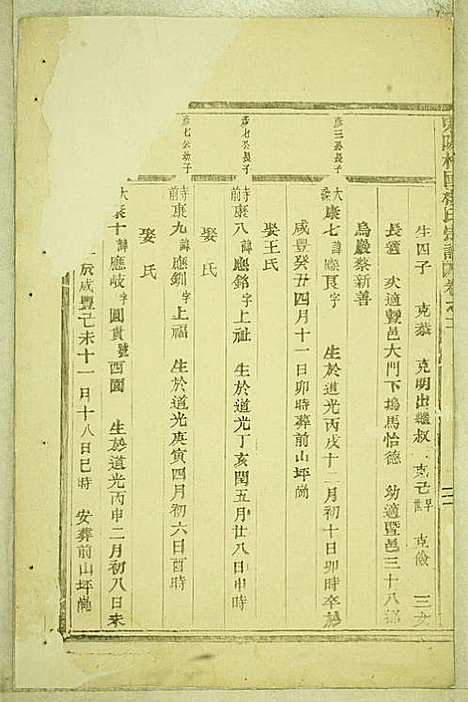 東陽 氏宗譜 卷之二
生四子 克恭 克明出繼叔 克己 克儉 三女
長適 次適暨邑大門下塢馬怡德 幼適暨邑三十八都
烏巖蔡新善
彥三公長子
大 康七 諱應良 字 生於道光丙戌十一月初十日卯時卒於
咸豐癸丑四月十一日卯時葬前山坪崗
娶王氏
彥七公長子
寺前 康八 諱應銘 字上祉 生於道光丁亥閏五月廿八日申時
娶 氏
彥七公幼子
寺前 康九 諱應釧 字上福 生於道光庚寅四月初六日酉時
娶 氏
大 康十 諱應岐 字圓貫 號西園 生於道光丙申二月初八日未
辰咸豐己未十一月十八日巳時 安葬前山坪崗